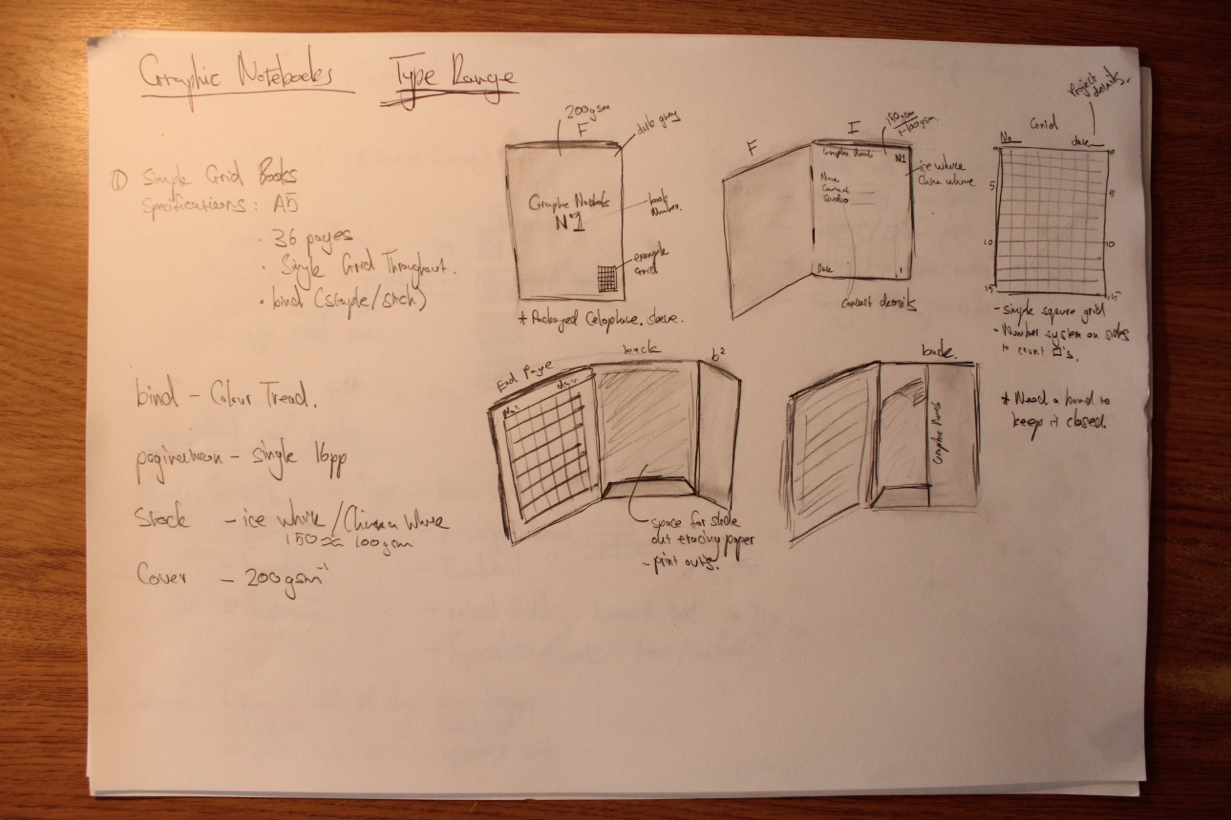 Graphic Notebooks   Type Range
① Simple Grid Books
Specifications: A5
· 36 pages
· Single Grid Throughout.
· bind (staple/stich)
bind – Colour Tread.
pagination – single 16pp
Stock – ice white / China white
150 100gsm
Cover – 200gsm
200gsm
F
Graphic Notebooks
Nº1
book
Number.
example
Grid
* Packaged Celophane. sleeve.
F
I
150gsm
100gsm
Nº1
ice white
China white
Name
Contact
Studio
Date
1
Contact details
Project
details.
Grid
No
date
5
5
10
10
15
15
- simple square grid
- Number system on sides
to count □'s.
End Page
No:
date
back
b²
space for stode
out tracing paper
- print outs.
back.
* Need a band to
keep it closed.